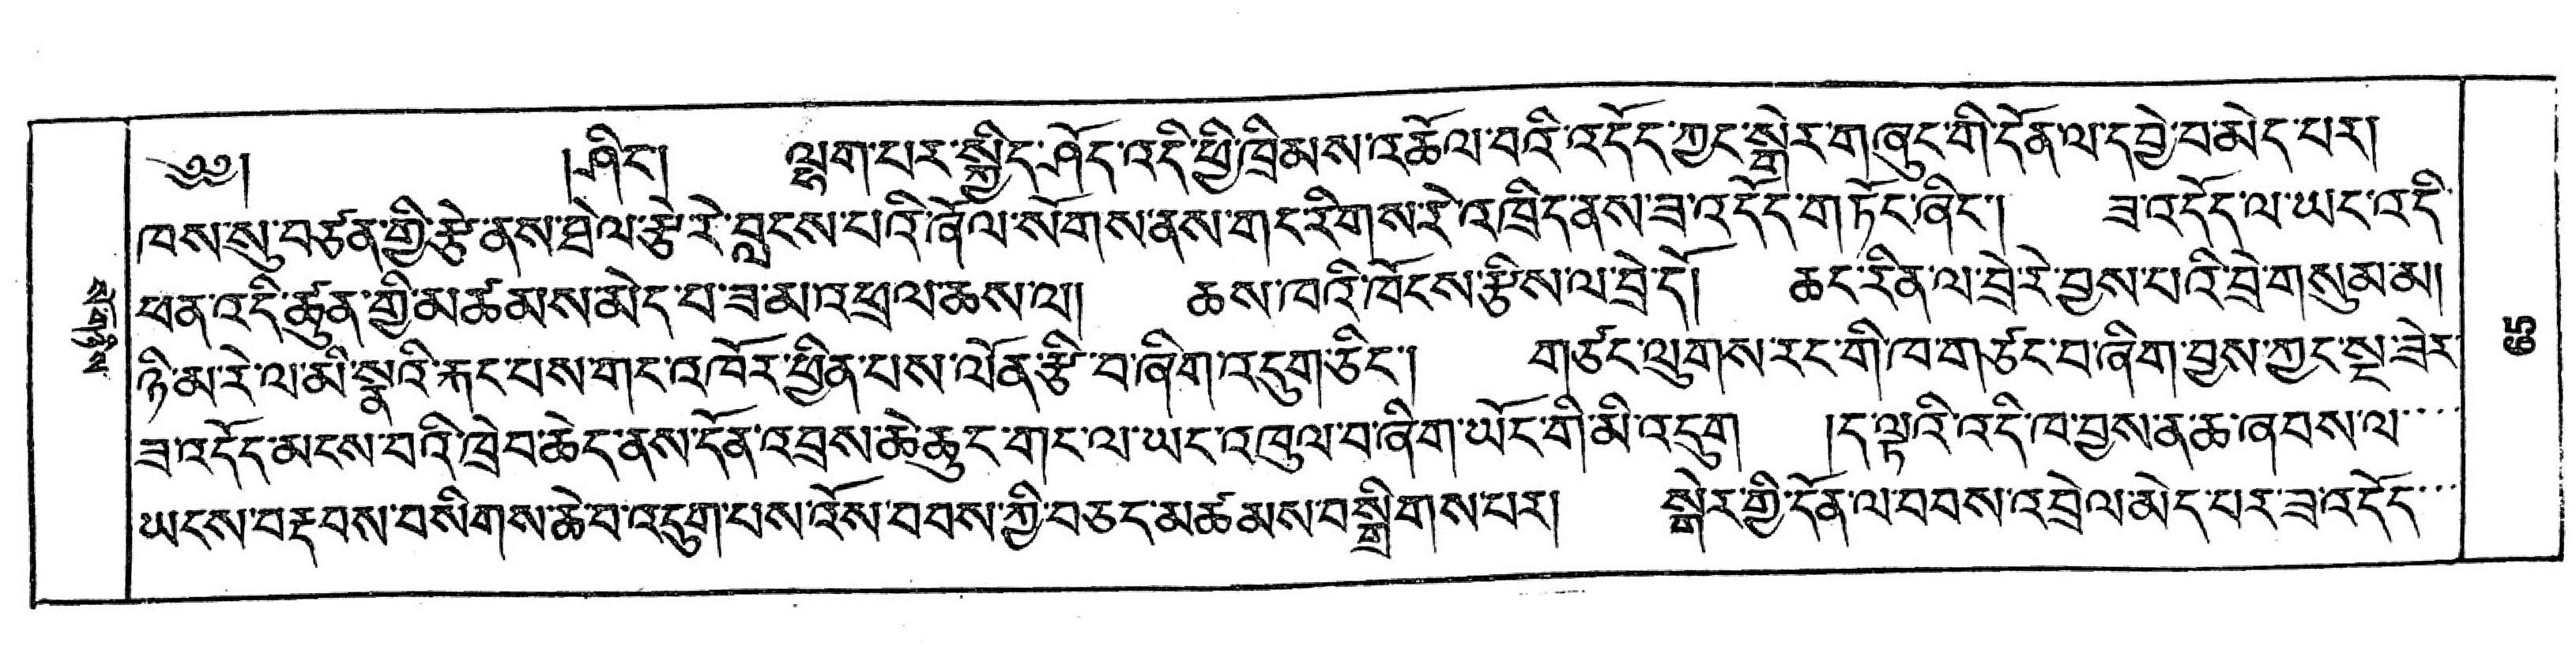 ༄༅། །ཤིང་། ལྷག་པར་སྐྱིད་ཤོད་འདི་ཕྱི་ཁྲིམས་འཆོལ་བའི་འདོད་ཀྱང་སྒེར་གཞུང་གི་དོན་ལ་དབྱེ་བ་མེད་པར།
ཁས་སུ་བཙན་གྱི་རྩེ་ནས་ཐེལ་རྩེ་རེ་བླངས་པའི་ཞོལ་སོགས་ནས་གང་རིགས་རེ་འཁྲིད་ནས་ཟ་འདོད་གཏོང་ཞིང་། ཟ་འདོད་ལ་ཡང་འདི་
ཕན་འདི་ཚུན་གྱི་མཚམས་མེད་པ་ཟ་མ་འཕྲལ་ཆས་ལ། ཆས་ཁའི་ཁོངས་རྩིས་ལ་བྲེ་དོ། ཆང་རིན་ལ་བྲེ་རེ་བྱས་པའི་བྲེ་གསུམ་མ།
ཉི་མ་རེ་ལ་མི་སྣའི་རྐང་པས་གང་འཁོར་ཕྱིན་པས་ལེན་རྩི་བ་ཞིག་འདུག་ཅིང་། གཙང་ལུགས་རང་གི་ཁ་གཙང་བ་ཞིག་བྱས་ཀྱང་སྔ་ཟེར་
ཟ་འདོད་མངས་བའི་ཁྲེབ་ཆེད་ནས་དོན་འབྲས་ཆེ་ཆུང་གང་ལ་ཡང་འཁུལ་བ་ཞིག་ཡོང་གི་མི་འདུག །ད་ལྟའི་འདི་ཁ་བྱས་ན་ཆ་ཞབས་ལ་
ཡངས་བརྡབས་བསིགས་ཆེ་བ་འདུག་པས་འོས་བབས་ཀྱི་བཅད་མཚམས་བསྒྲིགས་པར། སྒེར་གྱི་དོན་ལ་བབས་འབྲེལ་མེད་པར་ཟ་འདོད་
༧༣